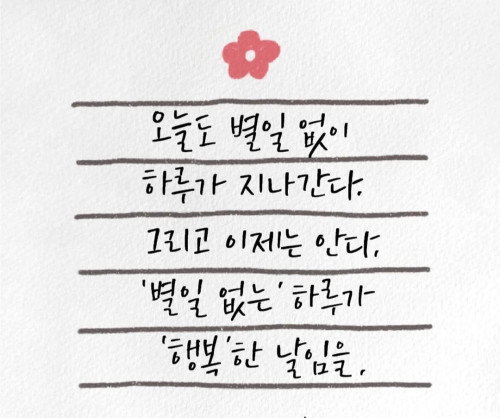 오늘도 별일 없이
하루가 지나간다.
그리고 이제는 안다,
'별일 없는' 하루가
'행복'한 날임을.